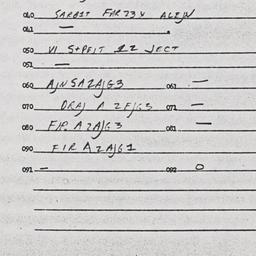 040 SARBIT FAR 23V ALEJN
041 —
050 VI S+PEJT 22 JECT
051 —
060 AJN SAZAJG3 061 —
070 DRAJ A ZFJG3 071 —
080 FIR A ZAJG3 081 —
090 FIR A ZAJG1
091 — 092 O